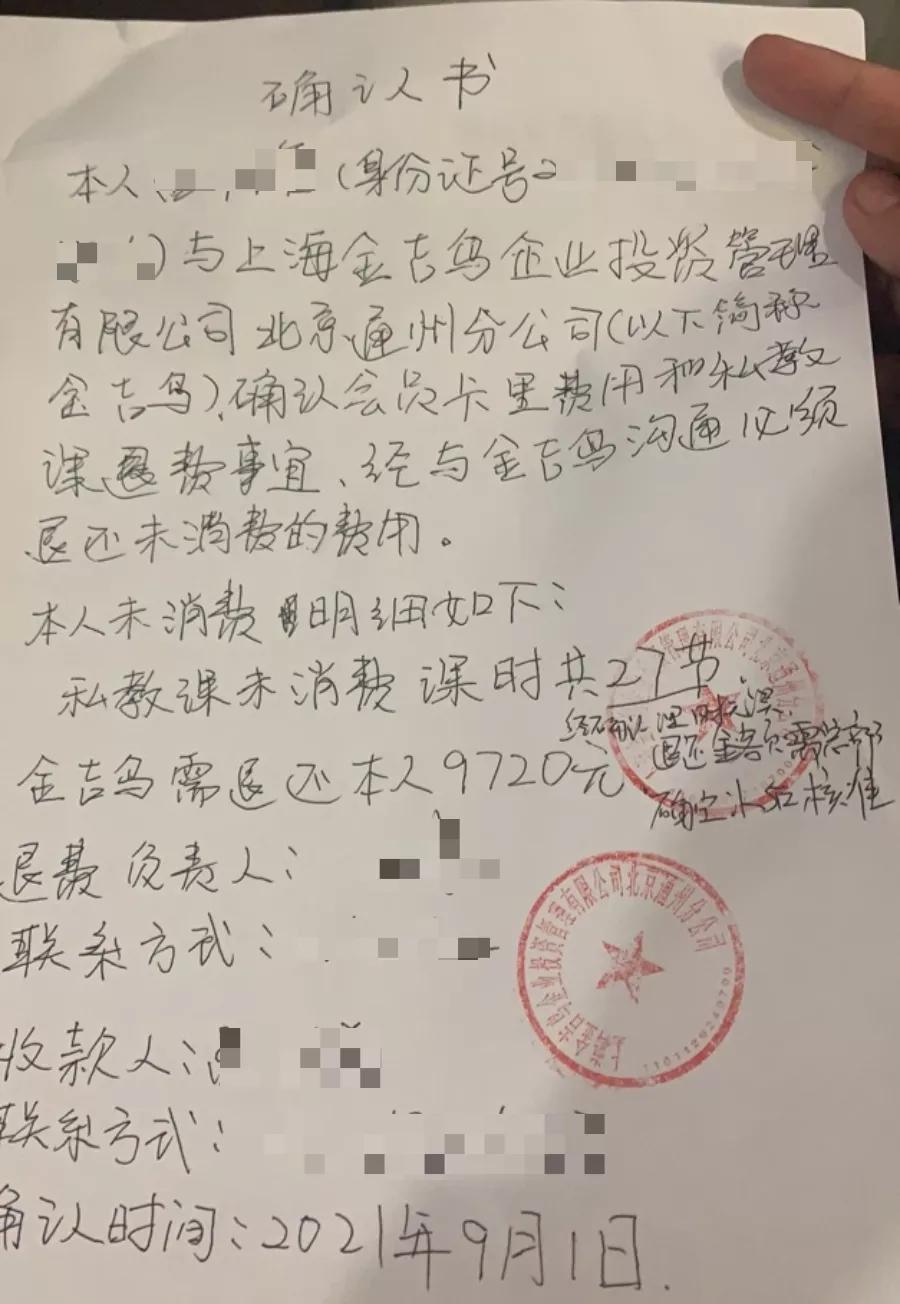 确认书
本人 (身份证号:
)与上海金吉鸟企业投资管理
有限公司北京通州分公司(以下简称
金吉鸟),确认会员卡里费用和私教
课退费事宜、经与金吉鸟沟通必须
退还未消费的费用。
本人未消费明细如下:
私教课未消费课时共27节.
经确认课时无误,
退还金额需总部
确定为准
金吉鸟需退还本人9720元
退费负责人:
联系方式:
上海金吉鸟企业投资管理有限公司北京通州分公司
收款人:
联系方式:
确认时间:2021年9月1日.